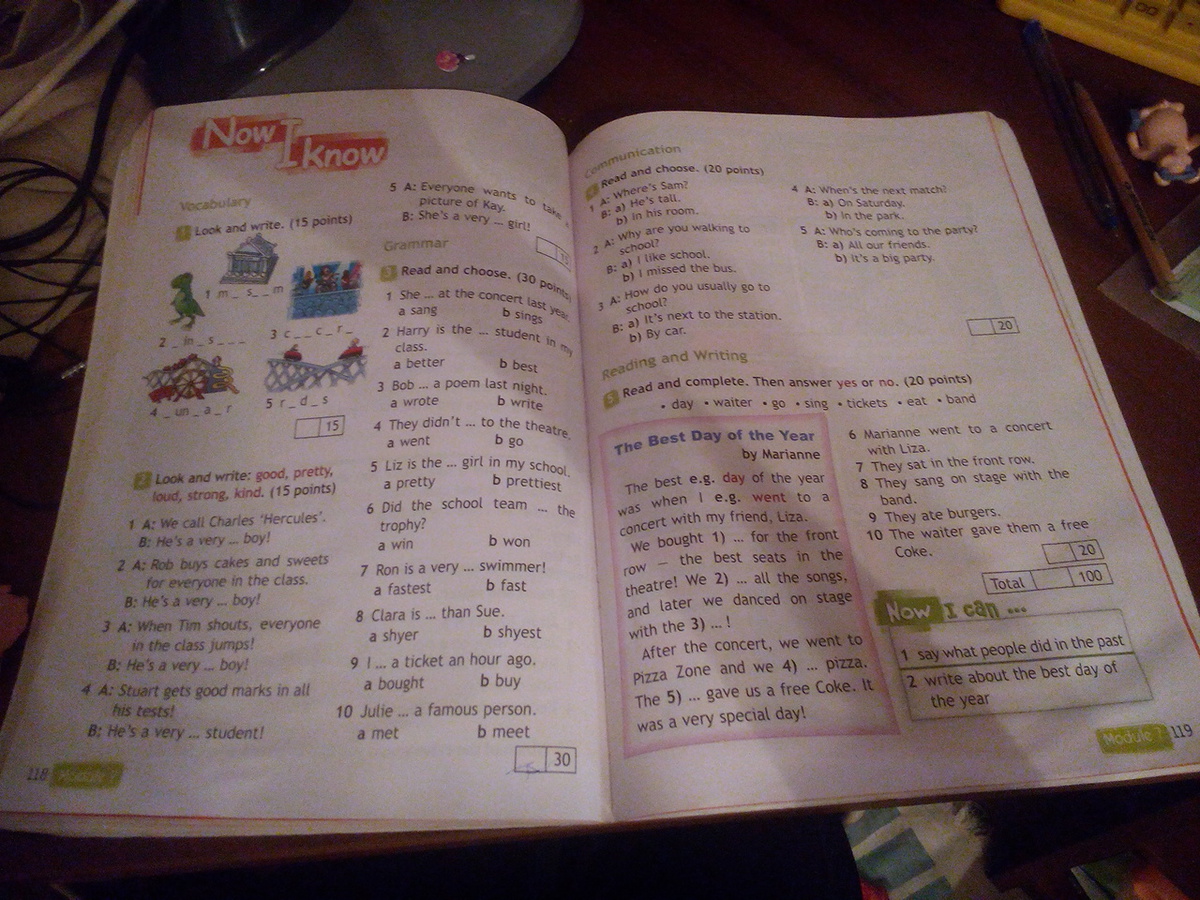 Now I Know
Vocabulary
1 Look and write. (15 points)
1 m _ s _ _ m
2 _ in _ s _ _ _
3 c _ _ c _ r _
4 _ un _ a _ r
5 r _ d _ s
15
2 Look and write: good, pretty,
loud, strong, kind. (15 points)
1 A: We call Charles 'Hercules'.
B: He's a very ... boy!
2 A: Rob buys cakes and sweets
for everyone in the class.
B: He's a very ... boy!
3 A: When Tim shouts, everyone
in the class jumps!
B: He's a very ... boy!
4 A: Stuart gets good marks in all
his tests!
B: He's a very ... student!
118 Module 7
5 A: Everyone wants to take a
picture of Kay.
B: She's a very ... girl!
15
Grammar
3 Read and choose. (30 points)
1 She ... at the concert last year.
a sang b sings
2 Harry is the ... student in my
class.
a better b best
3 Bob ... a poem last night.
a wrote b write
4 They didn't ... to the theatre.
a went b go
5 Liz is the ... girl in my school.
a pretty b prettiest
6 Did the school team ... the
trophy?
a win b won
7 Ron is a very ... swimmer!
a fastest b fast
8 Clara is ... than Sue.
a shyer b shyest
9 I ... a ticket an hour ago.
a bought b buy
10 Julie ... a famous person.
a met b meet
30
Communication
Read and choose. (20 points)
1 A: Where's Sam?
B: a) He's tall.
b) In his room.
2 A: Why are you walking to
school?
B: a) I like school.
b) I missed the bus.
3 A: How do you usually go to
school?
B: a) It's next to the station.
b) By car.
4 A: When's the next match?
B: a) On Saturday.
b) In the park.
5 A: Who's coming to the party?
B: a) All our friends.
b) It's a big party.
20
Reading and Writing
5 Read and complete. Then answer yes or no. (20 points)
• day • waiter • go • sing • tickets • eat • band
The Best Day of the Year
by Marianne
The best e.g. day of the year
was when I e.g. went to a
concert with my friend, Liza.
We bought 1) ... for the front
row – the best seats in the
theatre! We 2) ... all the songs,
and later we danced on stage
with the 3) ... !
After the concert, we went to
Pizza Zone and we 4) ... pizza.
The 5) ... gave us a free Coke. It
was a very special day!
6 Marianne went to a concert
with Liza.
7 They sat in the front row.
8 They sang on stage with the
band.
9 They ate burgers.
10 The waiter gave them a free
Coke.
20
Total 100
Now I can ...
1 say what people did in the past
2 write about the best day of
the year
Module 7 119